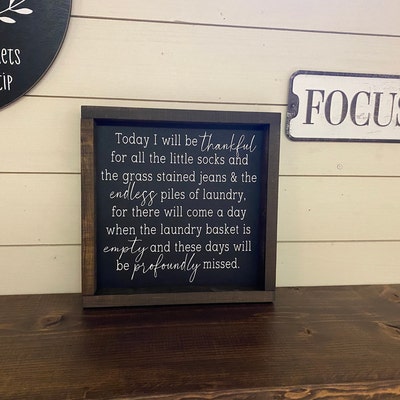 ets
tip
FOCUS
Today I will be thankful
for all the little socks and
the grass stained jeans & the
endless piles of laundry,
for there will come a day
when the laundry basket is
empty and these days will
be profoundly missed.